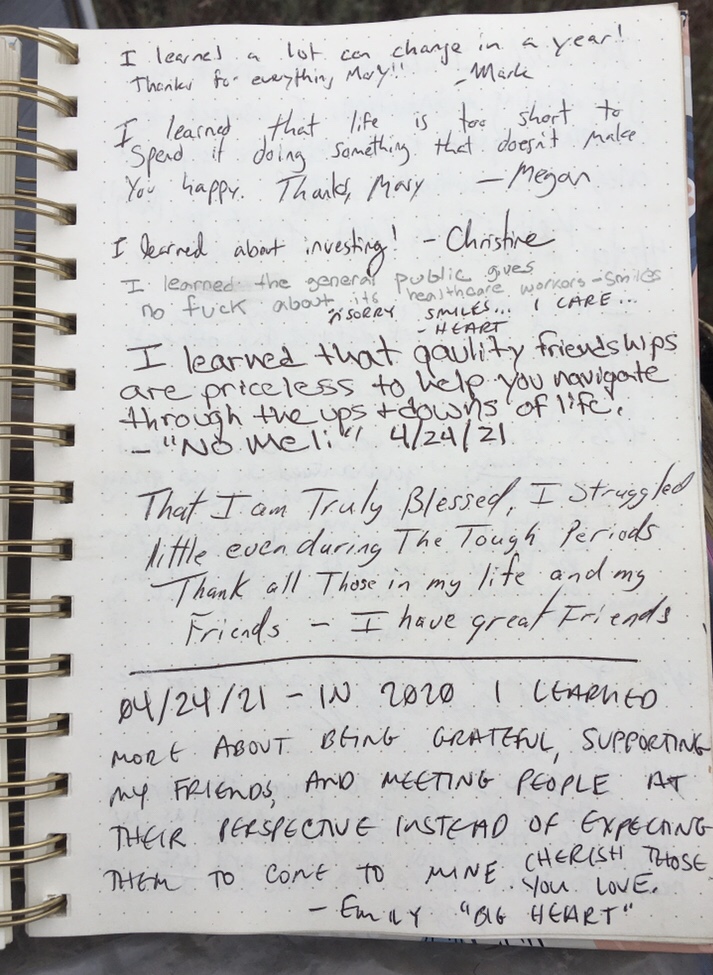 I learned a lot can change in a year!
Thanks for everything Mary!! -Mark
I learned that life is too short to
Spend it doing something that doesn't make
You happy. Thanks, Mary - Megan
I learned about investing! - Christine
I learned the general public gives
no fuck about its healthcare workers - smiles
^SORRY SMILES... I CARE...
- HEART
I learned that qaulity friendships
are priceless to help you navigate
through the ups + downs of life.
- "No Meli" 4/24/21
That I am Truly Blessed, I Struggled
little even during The Tough Periods
Thank all Those in my life and my
Friends - I have great Friends
04/24/21 - IN 2020 I LEARNED
MORE ABOUT BEING GRATEFUL, SUPPORTING
MY FRIENDS, AND MEETING PEOPLE AT
THEIR PERSPECTIVE INSTEAD OF EXPECTING
THEM TO COME TO MINE. CHERISH THOSE
YOU LOVE.
- EMILY "BIG HEART"